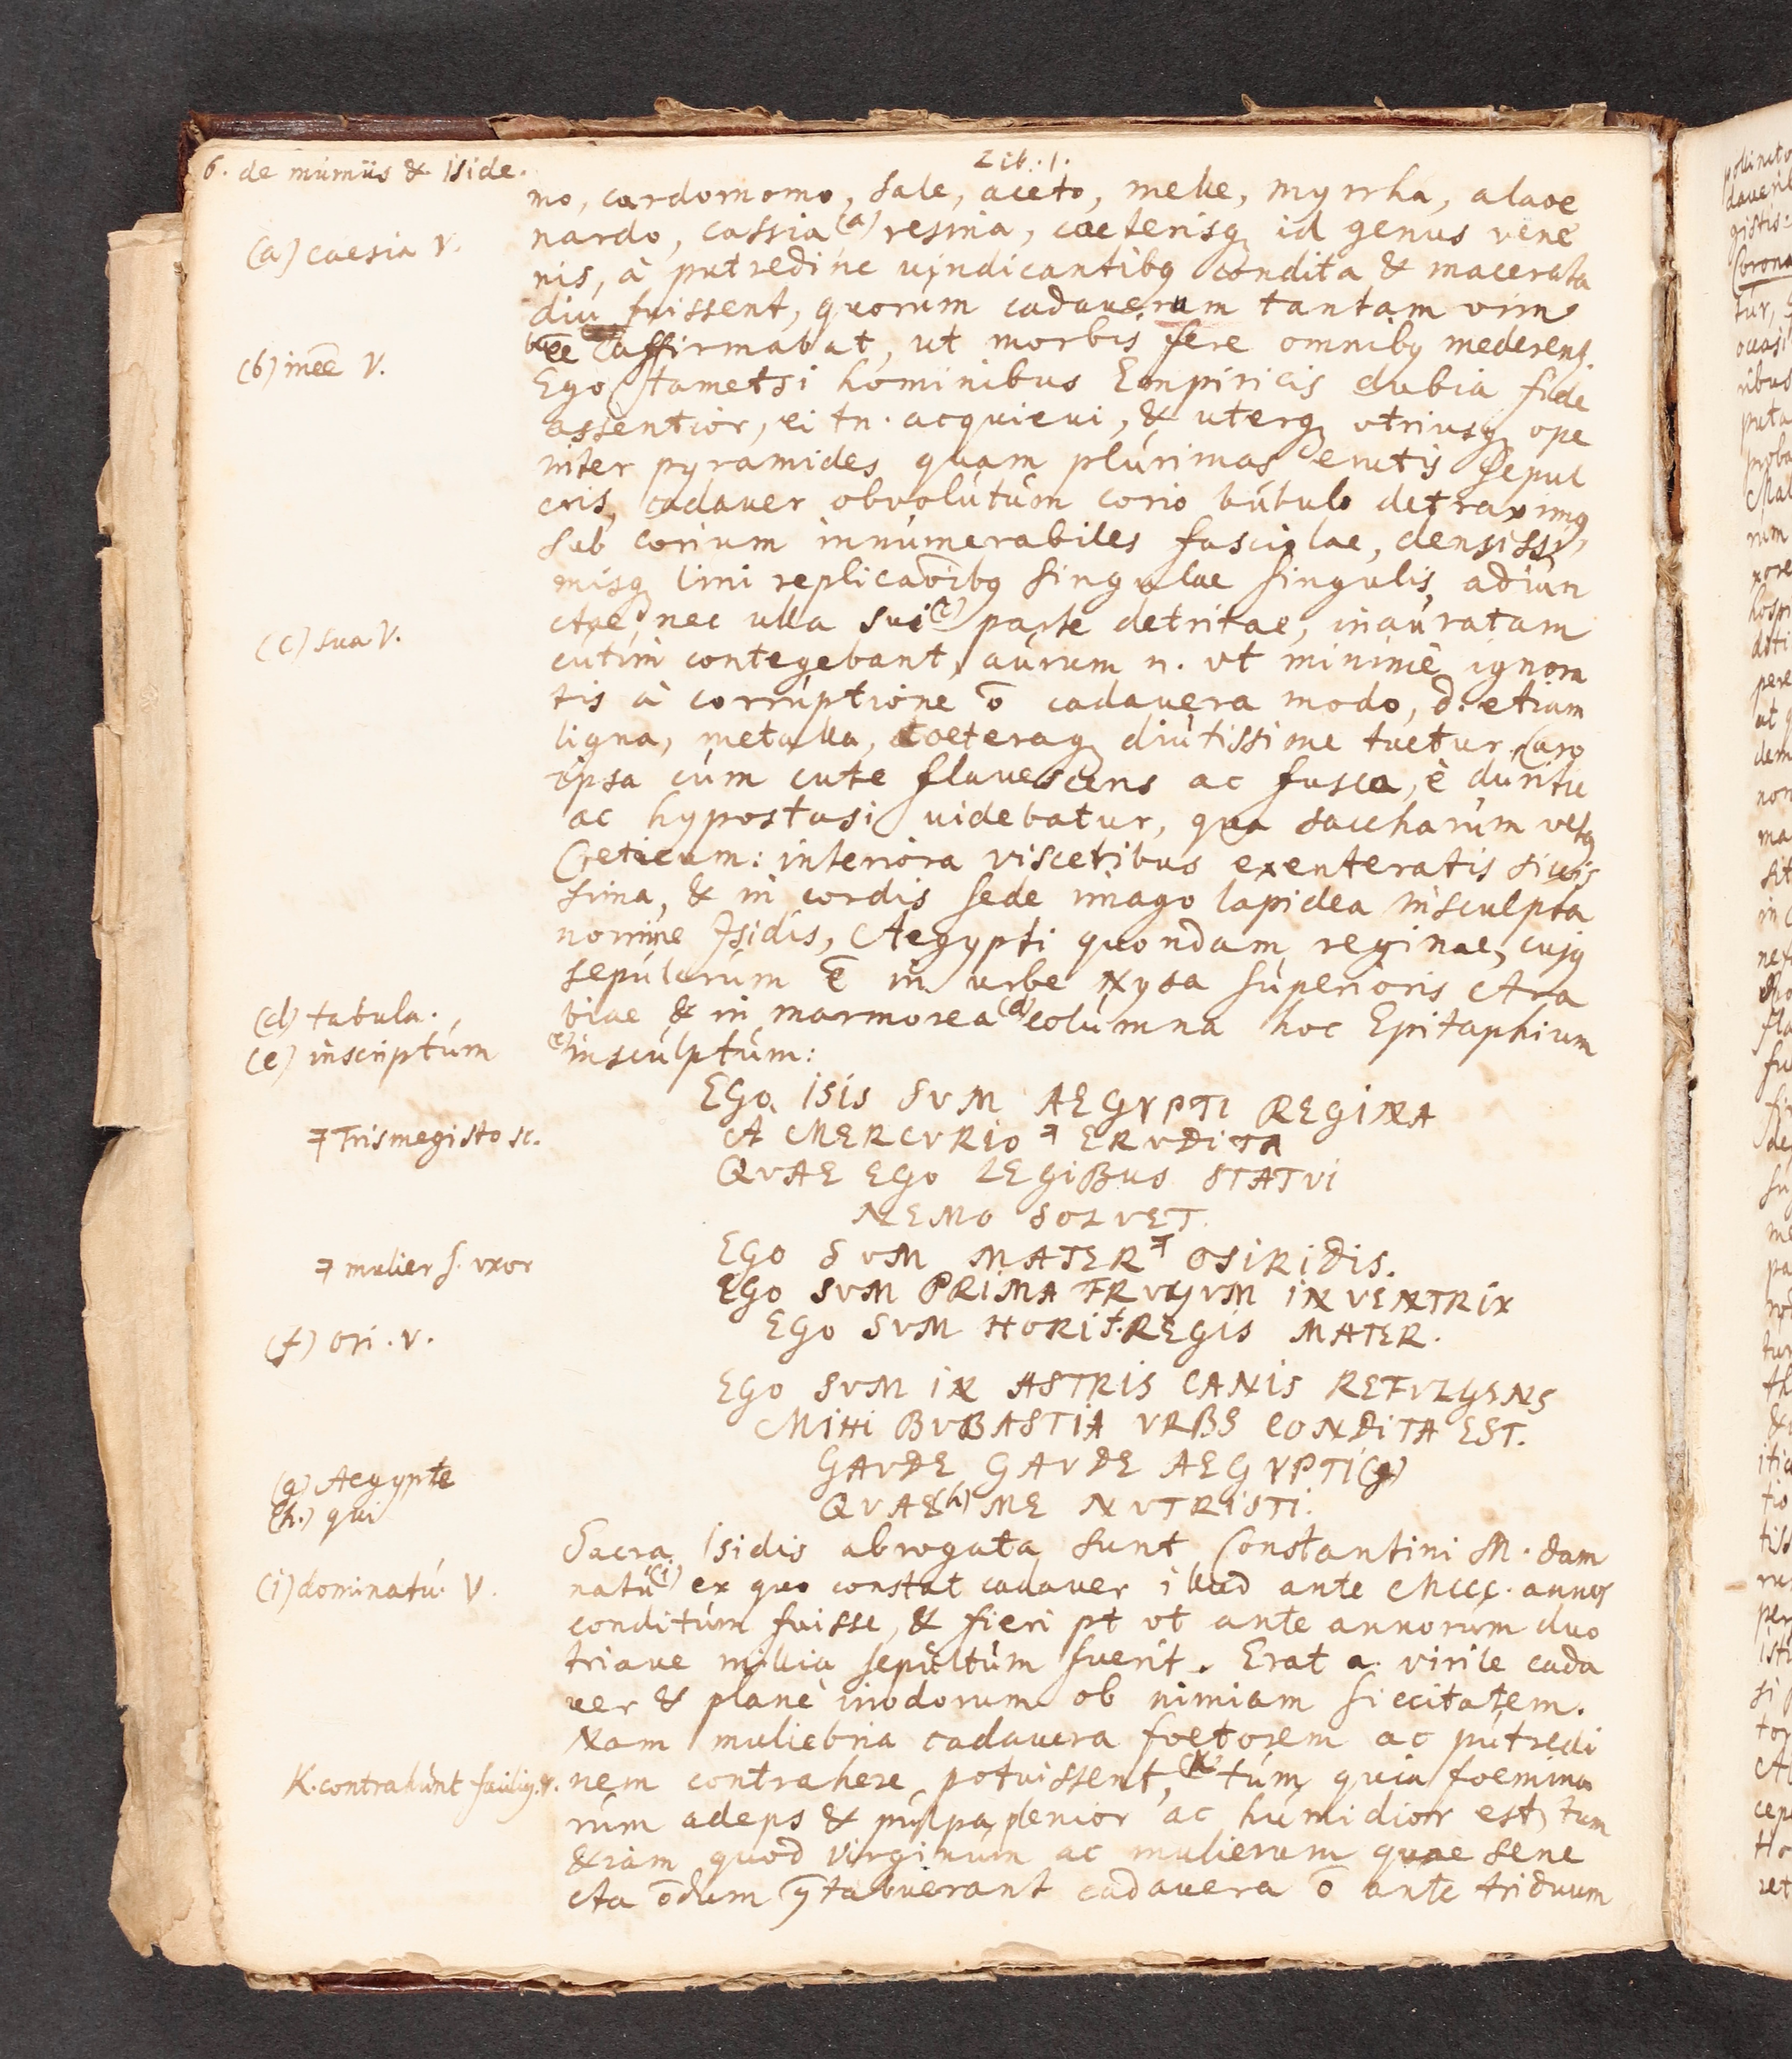 6. de mumiis & Iside.
Lib. 1.
mo, cardomomo, sale, aceto, melle, myrrha, aloae
(a) caesia V.
nardo, cassia (a) resina, caeterisq id genus vene
nis, à putredine vindicantibq condita & macerata
diu fuissent, quorum cadauerum tantam vim
(b) inee V.
ee affirmabat, ut morbis fere omnibq mederent
Ego tametsi hominibus Empiricis dubia fide
assentior, ei tn. acquieui, & uterq utriusq ope
inter pyramides quam plurimas erutis sepul
cris, cadauer obvolutum corio bubulo detraximq
sub corium innumerabiles fasciolae, densissi,
misq lini replicaoibq singulae singulis adiun
(c) sua V.
ctae, nec ulla sui (c) parte detritae, inauratam
cutim contegebant, aurum n. ut minime ignora
tis à corruptione o cadauera modo, d. etiam
ligna, metalla, coeteraq diutissime tuetur. Caro
ipsa cum cute flauescens ac fusca, è duritie
ac hypostasi uidebatur, qua saccharum vetq
Creticum: interiora visceribus exenteratis siccis
sima, & in cordis sede imago lapidea insculpta
nomine Isidis, Aegypti quondam reginae, cujq
sepulcrum e in urbe Nysa superioris Ara
(d) tabula.
biae & in marmorea (d) columna hoc Epitaphium
(e) inscriptum
(e) insculptum:
EGO ISIS SVM AEGYPTI REGINA
Trismegisto sc.
A MERCVRIO ERVDITA
QVAE EGO LEGIBUS STATVI
NEMO SOLVET.
mulier s. uxor
EGO SVM MATER OSIRIDIS.
EGO SVM PRIMA FRVGVM INVENTRIX
(f) Ori. V.
EGO SVM HORI f. REGIS MATER.
EGO SVM IN ASTRIS CANIS REFVLGENS
MIHI BVBASTIA URBS CONDITA EST.
(g) Aegypte
GAVDE GAVDE AEGYPTI (g)
(h.) qui
QVAE (h) ME NVTRISTI.
Sacra Isidis abrogata sunt Constantini M. dam
(i) dominatu. V.
natu (i) ex quo constat cadauer illud ante MCCC. annos
conditum fuisse, & fieri pt ut ante annorum duo
triaue millia sepultum fuerit. Erat a. virile cada
uer & planè inodorum ob nimiam siccitatem.
Nam muliebria cadauera foetorem ac putredi
K. contrahunt faciliq. V.
nem contrahere potuissent, (k) tum quia foemina
rum adeps & pulpa plenior ac humidior est, tum
etiam quod virginum ac mulierum quae sene
cta odum tabuerant cadauera o ante triduum